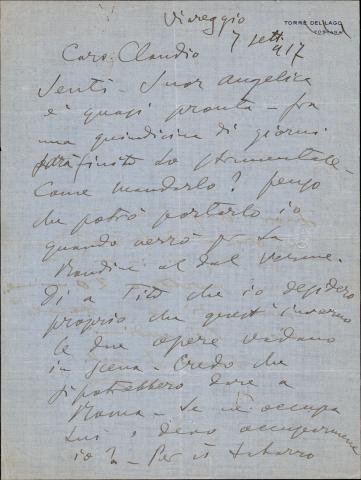 TORRE DEL LAGO
TOSCANA
Viareggio
7 sett. 917
Caro Claudio
Senti - Suor Angelica
è quasi pronta - fra
una quindicina di giorni
sarà finito lo strumentale -
Come mandarlo? penso
che potrò portarlo io
quando verrò per La
Rondine al dal Verme.
Di a Tito che io desidero
proprio che quest'inverno
le due opere vadano
in scena - Credo che
si potrebbero dare a
Roma - Se ne occupa
lui o devo occuparmene
io? - Per il Tabarro